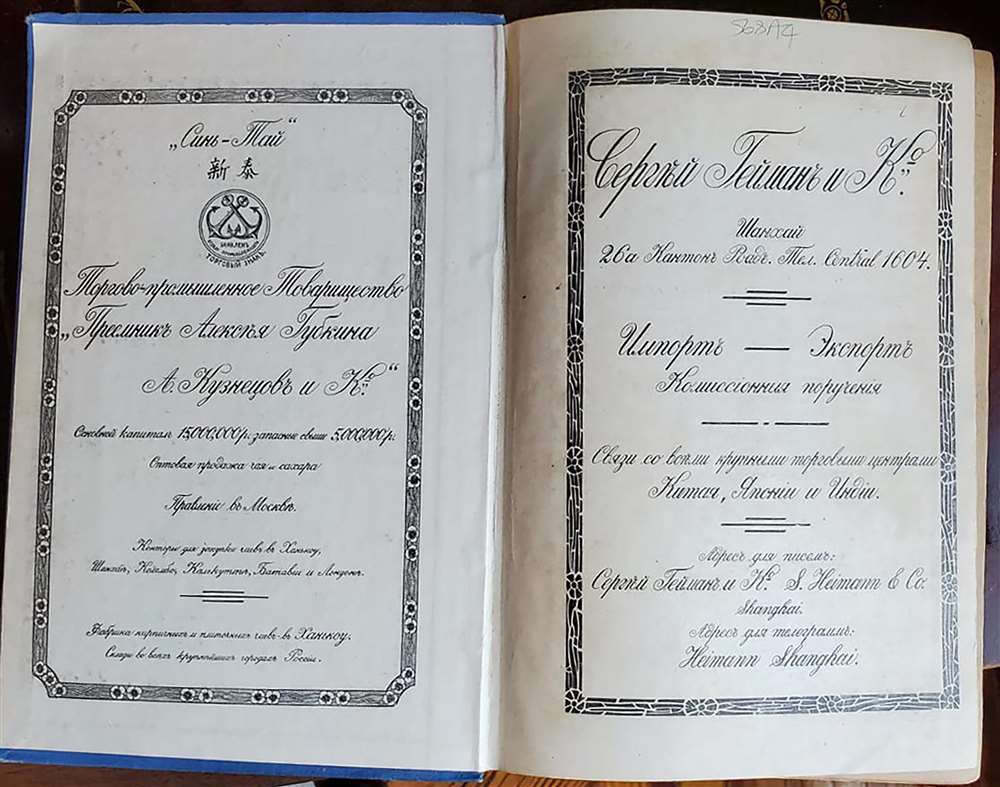 „Синь-Тай“
新泰
ЗАЯВЛЕНЪ
ТОРГОВЫЙ ЗНАКЪ.
Торгово-промышленное Товарищество
„Преемникъ Алексѣя Губкина
А. Кузнецовъ и Кº“
Основной капиталъ 15,000,000 р. запасные свыше 5,000,000 р.
Оптовая продажа чая и сахара
Правленіе въ Москвѣ.
Конторы для закупки чаевъ въ Ханькоу,
Шанхаѣ, Коломбо, Калькуттѣ, Батавіи и Лондонѣ.
Фабрика кирпичныхъ и плиточныхъ чаевъ въ Ханькоу.
Склады во всѣхъ крупнѣйшихъ городахъ Россіи.
568A4
Сергѣй Гейманъ и Кº.
Шанхай
26а Кантонъ Родъ. Тел. Central 1604.
Импортъ — Экспортъ
Комиссіонныя порученія
Связи со всѣми крупными торговыми центрами
Китая, Японіи и Индіи.
Адресъ для писемъ:
Сергѣй Гейманъ и Кº S. Heimann & Co:
Shanghai.
Адресъ для телеграммъ:
Heimann Shanghai.